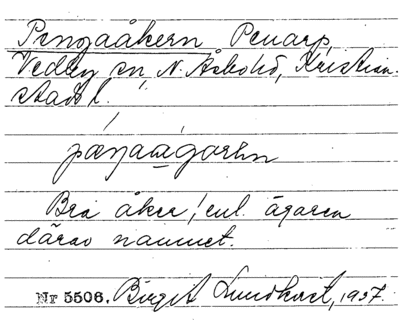 Pengaåkern Penarp,
Vedby sn, N. Åsbo hd, Kristian-
stads l.
Bra åker, enl. ägaren
därav namnet.
Nr 5506. Birgit Lundkvist, 1937.